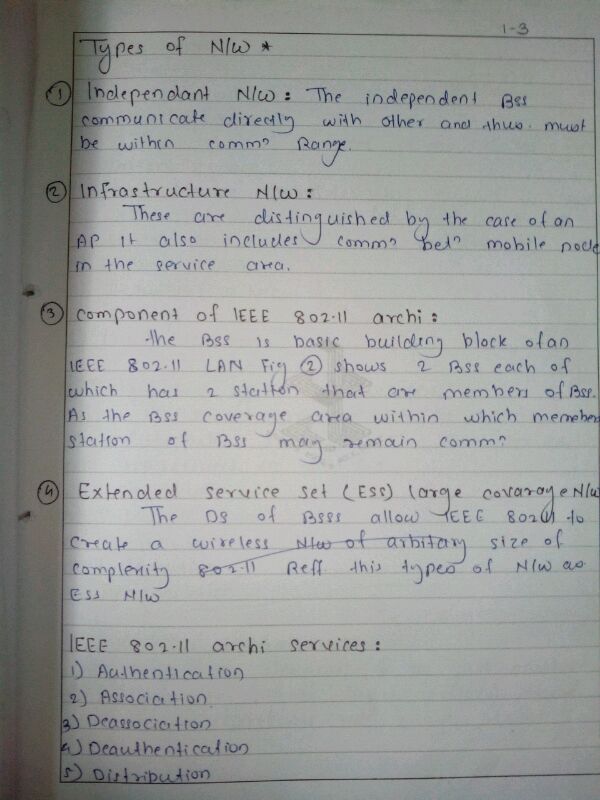 1-3
Types of N/W *
① Independant N/W : The independent Bss
communicate directly with other and thus must
be within commⁿ Range.
② Infrastructure N/W :
These are distinguished by the case of an
AP It also includes commⁿ betⁿ mobile node
in the service area.
③ component of IEEE 802.11 archi :
the Bss is basic building block of an
IEEE 802.11 LAN Fig ② shows 2 Bss each of
which has 2 station that are members of Bss.
As the Bss coverage area within which memebers
station of Bss may remain commⁿ
④ Extended service set (Ess) large covarage N/W
The DS of Bsss allow IEEE 802.11 to
create a wireless N/W of arbitary size of
complexity 802.11 Reff this types of N/W as
ESS N/W
IEEE 802.11 archi services :
1) Authentication
2) Association
3) Deassociation
4) Deauthentication
5) Distribution